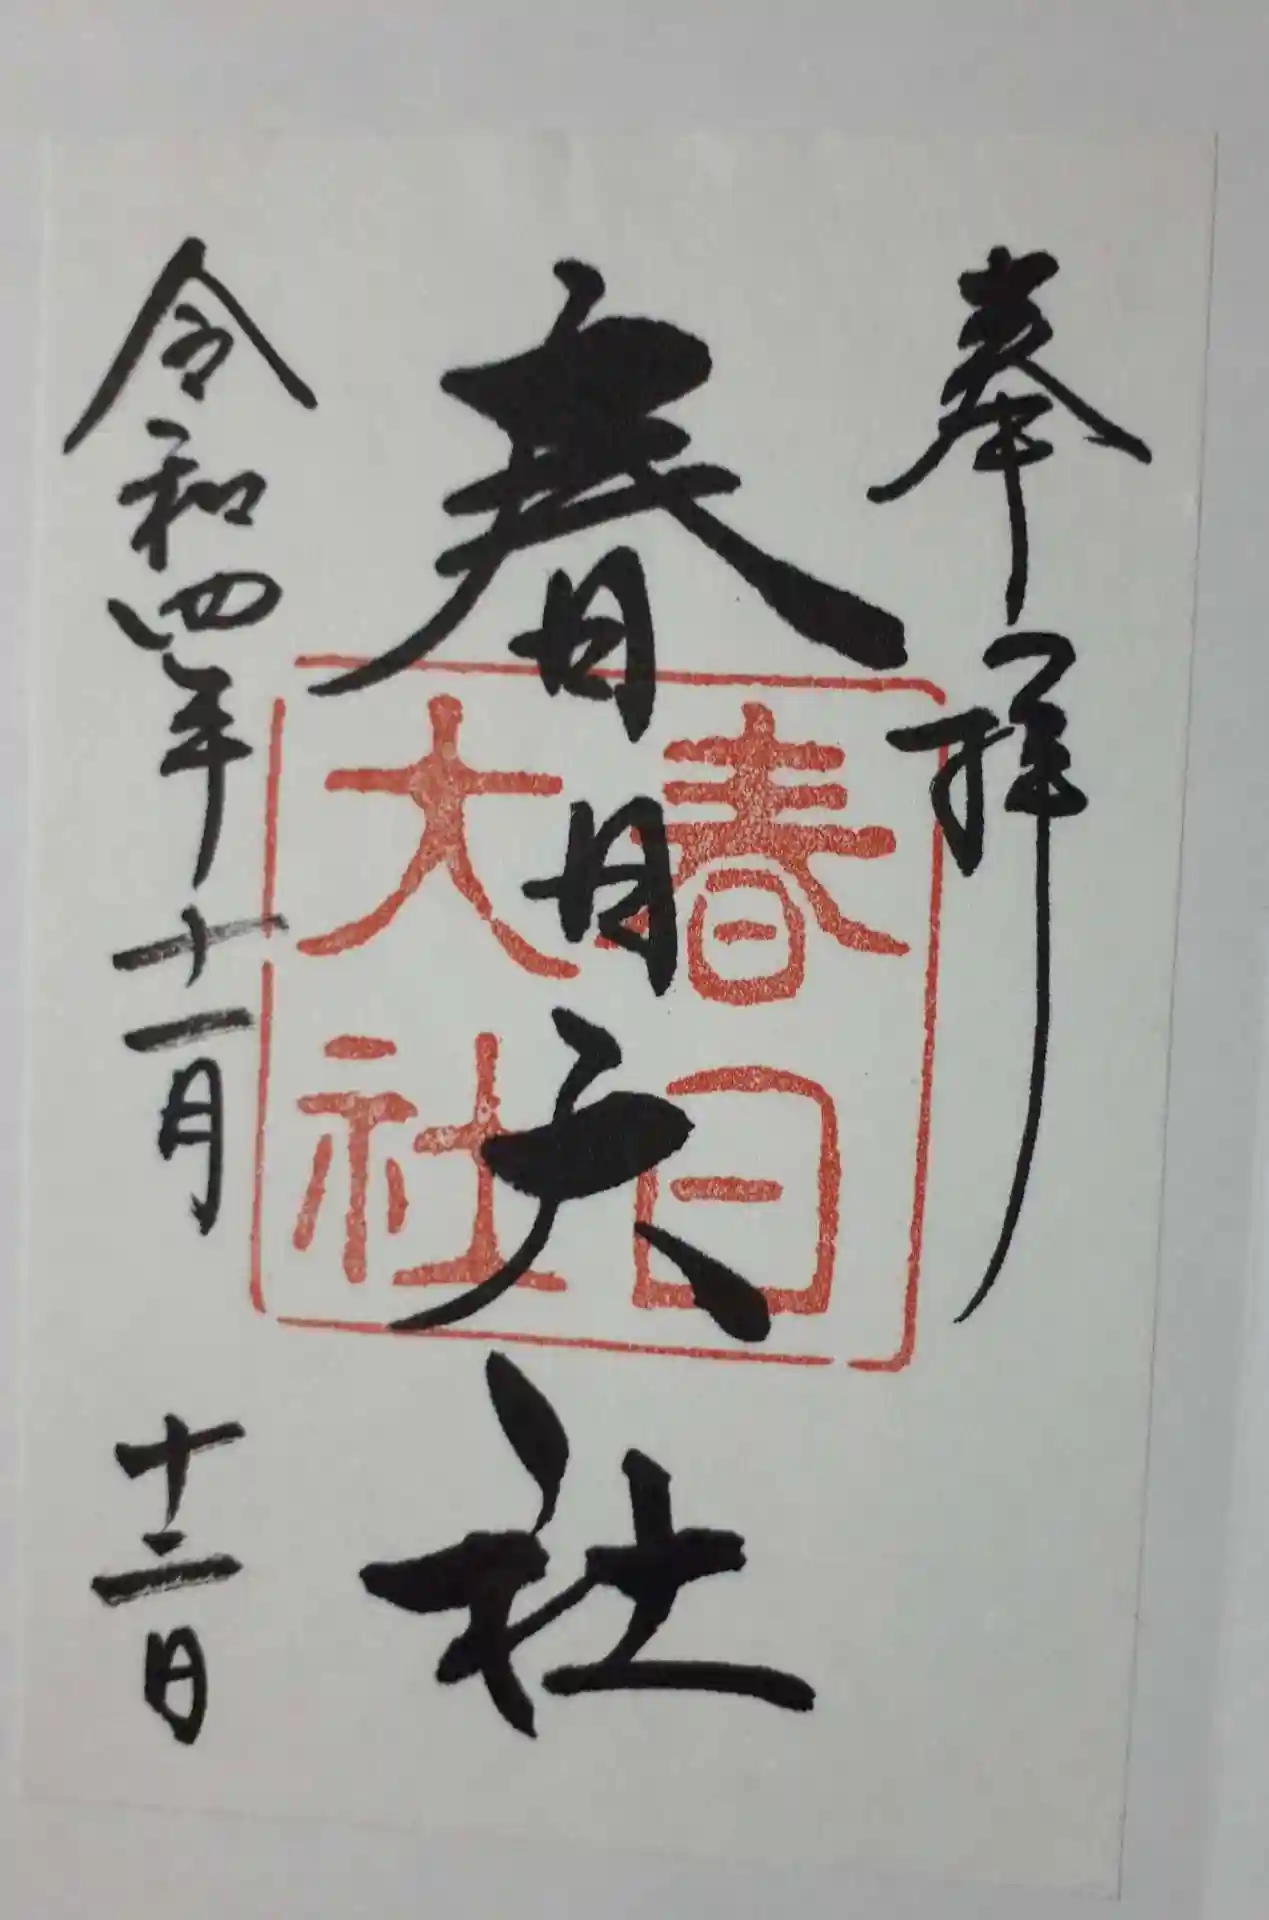 奉拝
春日大社
春日
大社
令和四年十一月十二日